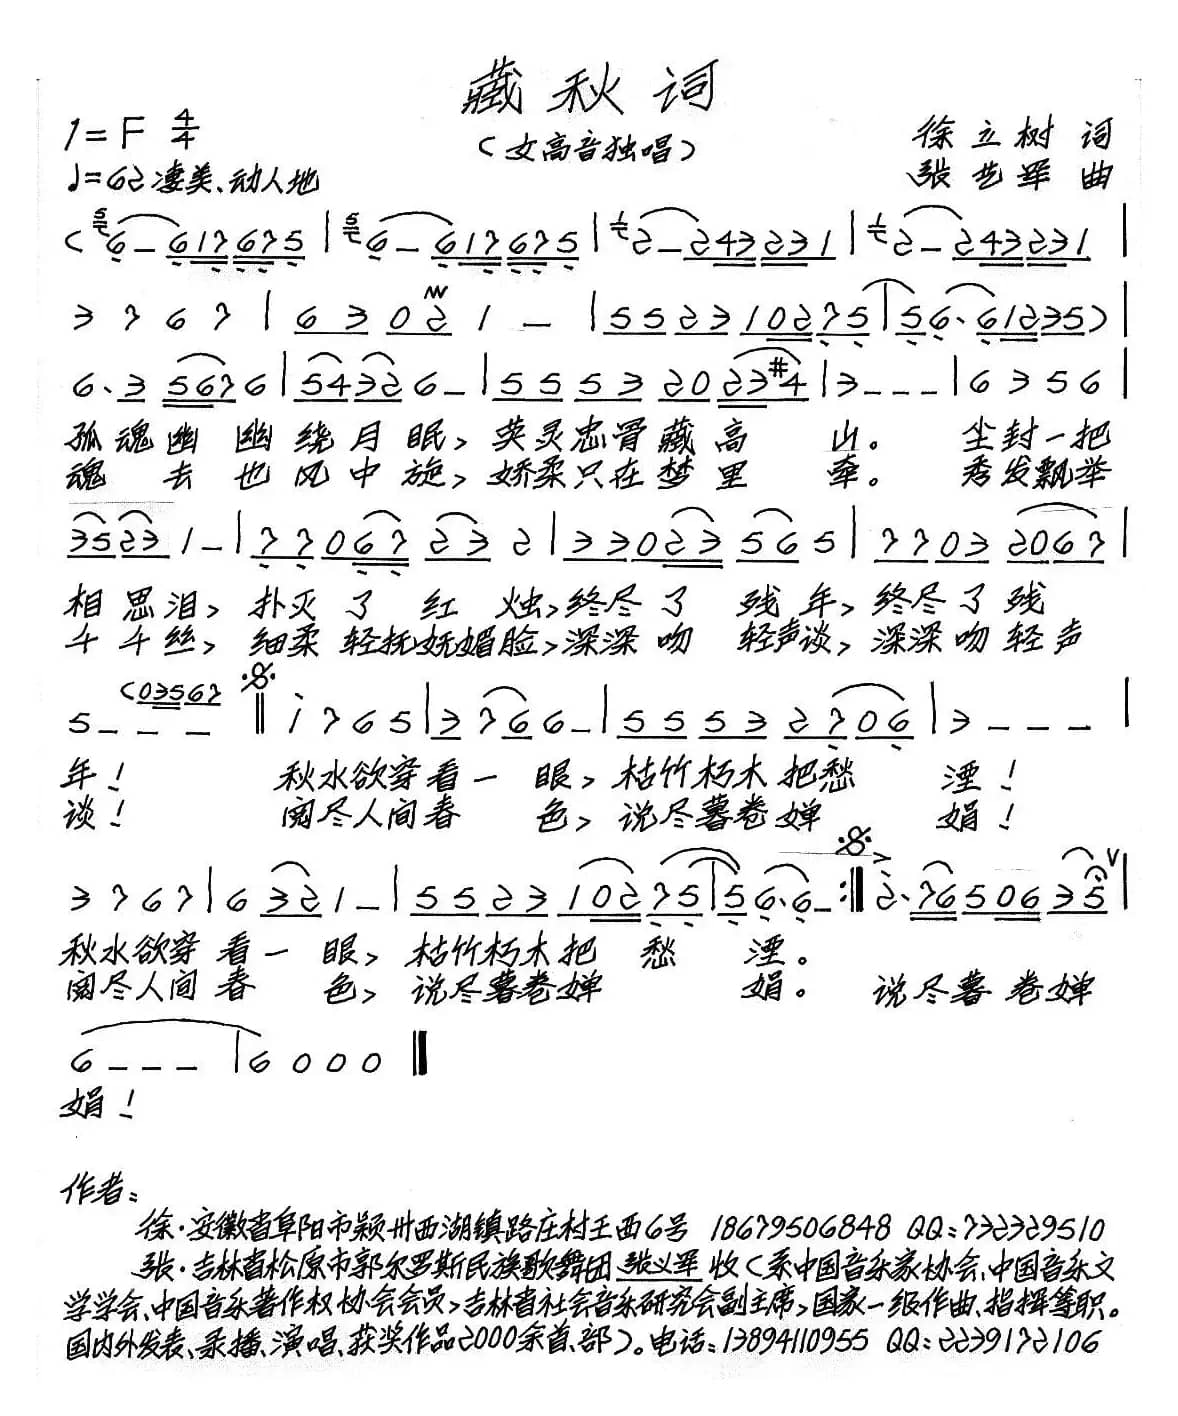 藏秋词
1=F 4/4
（女高音独唱）
徐立树 词
♩=62 凄美、动人地
张艺军 曲
(6 – 6 1 7 6 7 5 | 6 – 6 1 7 6 7 5 | 2 – 2 4 3 2 2 3 1 | 2 – 2 4 3 2 2 3 1 |
3 7 6 7 | 6 3 0 2 1 – | 5 5 2 3 1 0 2 7 5 | 5 6· 6 1 2 3 5) |
6· 3 5 6 7 6 | 5 4 3 2 6 – | 5 5 5 3 2 0 2 3 #4 | 3 – – – | 6 3 5 6 |
孤魂幽 幽绕月眠，英灵忠骨藏高 山。 尘封一把
魂 去 也风中旋，娇柔只在梦里 牵。 秀发飘举
3 5 2 3 1 – | 7 7 0 6 7 2 3 2 | 3 3 0 2 3 5 6 5 | 7 7 0 3 2 0 6 7 |
相思泪，扑灭了 红 烛，终尽了 残年，终尽了残
千千丝，细柔轻抚妩媚脸，深深吻 轻声谈，深深吻轻声
5 – – – (0 3 5 6 7 ‖ 1 7 6 5 | 3 7 6 6 – | 5 5 5 3 2 7 0 6 | 3 – – – |
年！ 秋水欲穿看一 眼，枯竹朽木把愁 湮！
谈！ 阅尽人间春 色，说尽薯卷婵 娟！
3 7 6 7 | 6 3 2 1 – | 5 5 2 3 1 0 2 7 5 | 5 6· 6 – :‖ 2· 7 6 5 0 6 3 5 |
秋水欲穿看一 眼，枯竹朽木把 愁 湮。
阅尽人间春 色，说尽薯卷婵 娟。 说尽薯卷婵
6 – – – | 6 0 0 0 ‖
娟！
作者：
徐·安徽省阜阳市颍州西湖镇路庄村王西6号 18679506848 QQ：732329510
张·吉林省松原市郭尔罗斯民族歌舞团 张义军 收（系中国音乐家协会、中国音乐文
学学会、中国音乐著作权协会会员，吉林省社会音乐研究会副主席，国家一级作曲、指挥等职。
国内外发表、录播、演唱、获奖作品2000余首、部）。电话：13894110955 QQ：2239172106